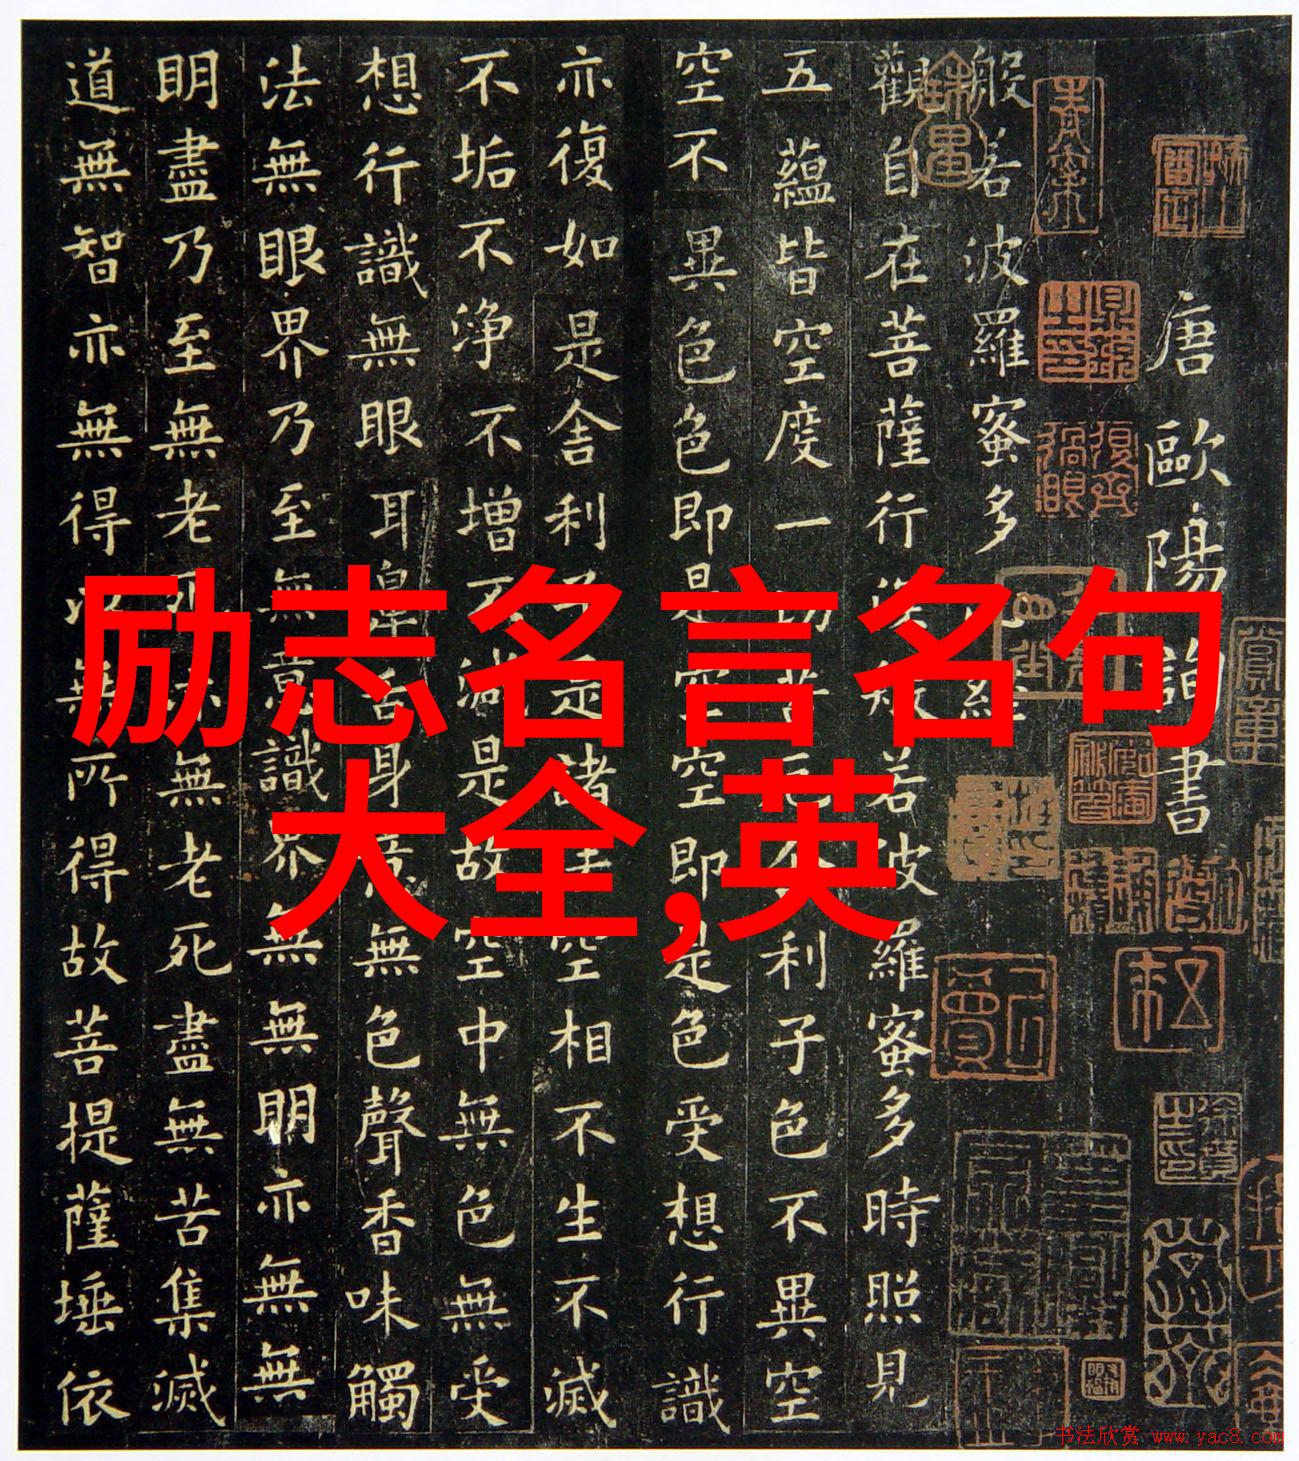 励志名言名句
大全,英
唐歐陽詢書
般若波羅蜜多心經
觀自在菩薩行深般若波羅蜜多時照見
五蘊皆空度一切苦厄舍利子色不異空
空不異色色即是空空即是色受想行識
亦復如是舍利子是諸法空相不生不滅
不垢不淨不增不減是故空中無色無受
想行識無眼耳鼻舌身意無色聲香味觸
法無眼界乃至無意識界無無明亦無無
明盡乃至無老死亦無老死盡無苦集滅
道無智亦無得以無所得故菩提薩埵依
书法欣赏 www.yac8.com